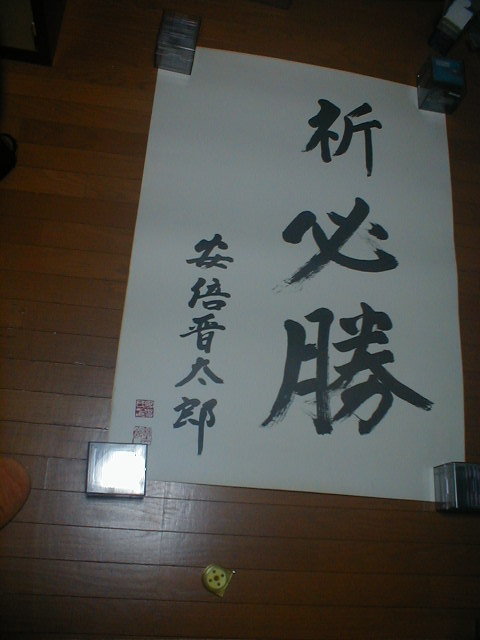 祈必勝
安倍晋太郎